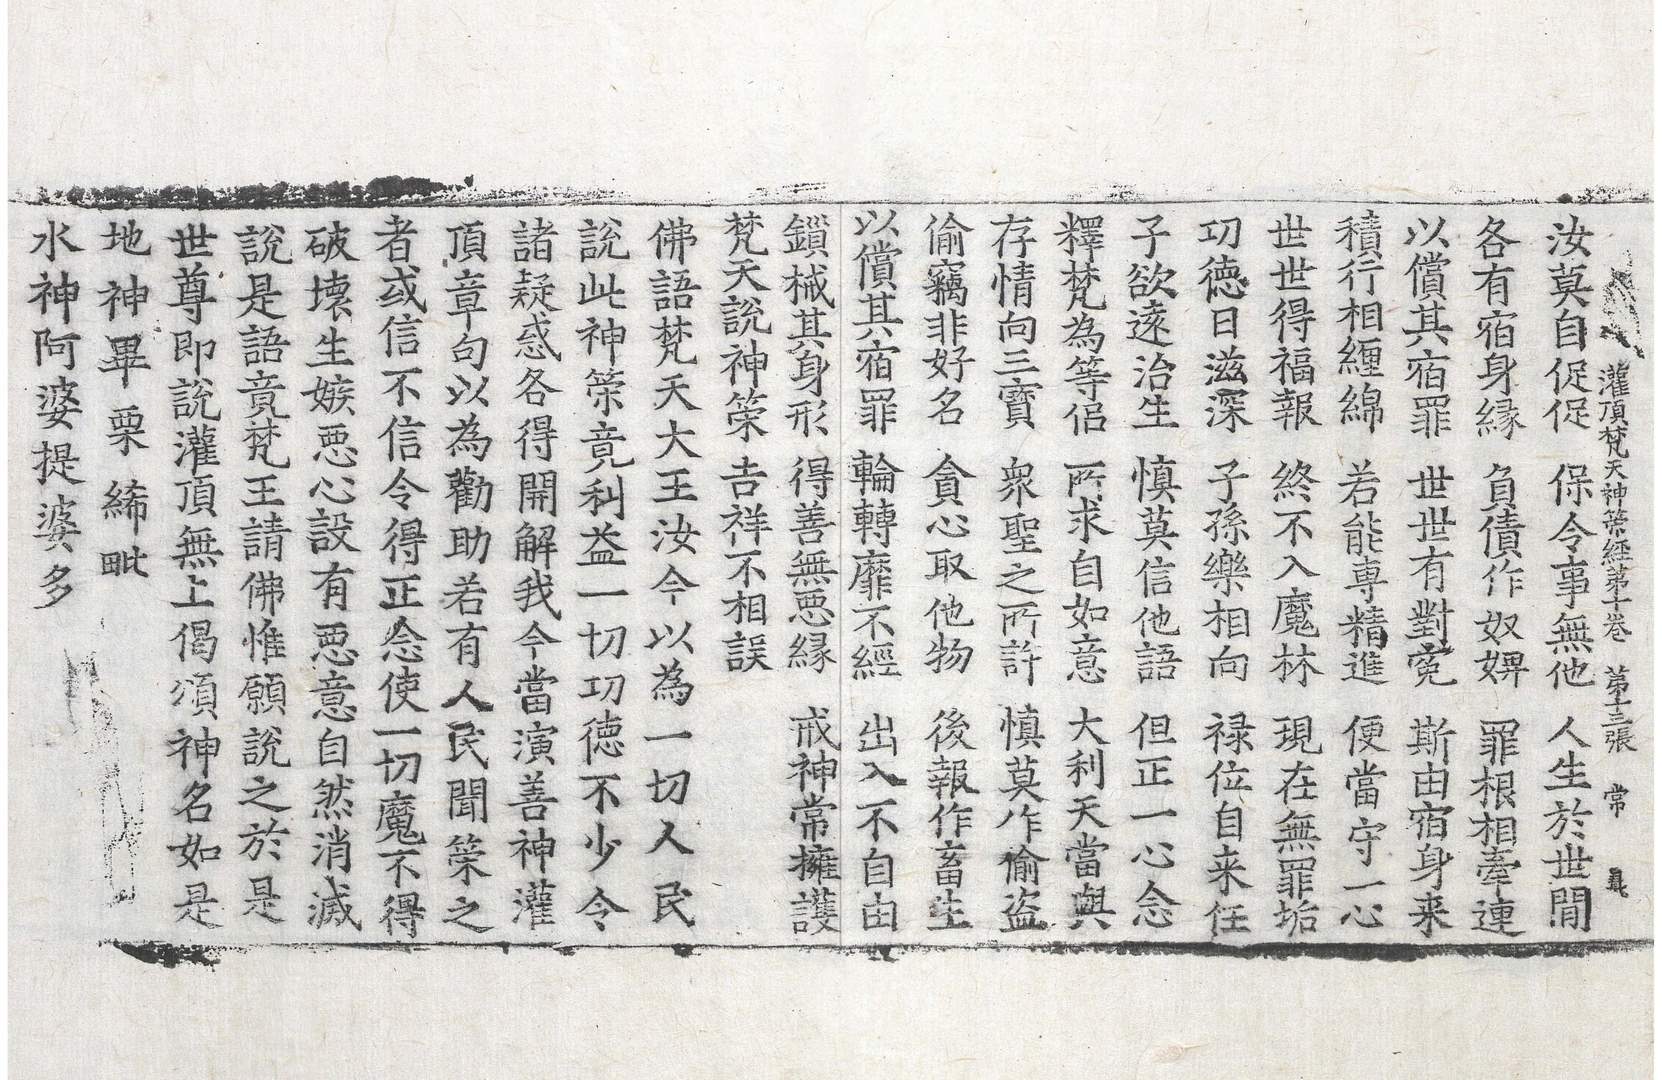 灌頂梵天神策經第十卷　第十三張　常
汝莫自促促　保令事無他　人生於世閒
各有宿身縁　負債作奴婢　罪根相牽連
以償其宿罪　世世有對寃　斯由宿身来
積行相纏綿　若能專精進　便當守一心
世世得福報　終不入魔林　現在無罪垢
功德日滋深　子孫樂相向　禄位自来任
子欲遠治生　慎莫信他語　但正一心念
釋梵為等侶　所求自如意　大利天當與
存情向三寶　衆聖之所許　慎莫作偷盜
偷竊非好名　貪心取他物　後報作畜生
以償其宿罪　輪轉靡不經　出入不自由
鎻械其身形　得善無惡縁　戒神常擁護
梵天說神策　吉祥不相誤
佛語梵天大王汝今以為一切人民
說此神策竟利益一切功德不少令
諸疑惑各得開解我今當演善神灌
頂章句以為勸助若有人民聞策之
者或信不信令得正念使一切魔不得
破壞生嫉惡心設有惡意自然消滅
說是語竟梵王請佛惟願說之於是
世尊即說灌頂無上偈頌神名如是
地神畢栗絺毗
水神阿婆提婆多